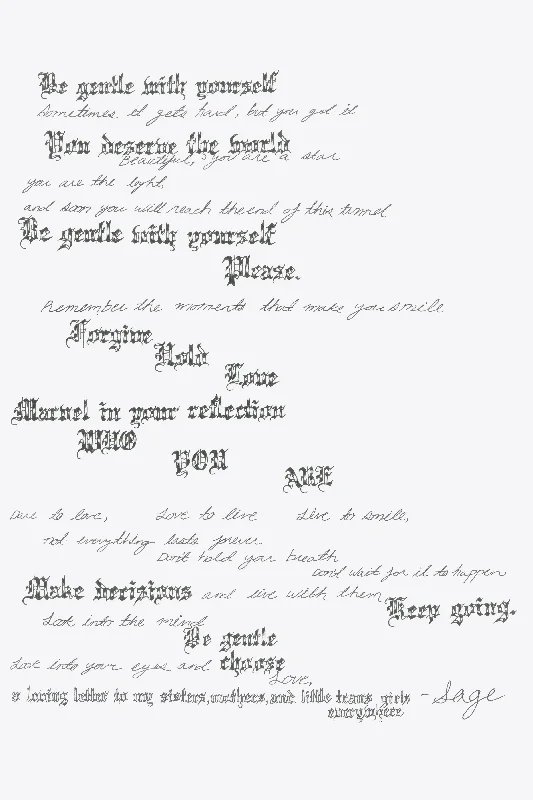 Be gentle with yourself
Sometimes it gets hard, but you got it
You deserve the world
Beautiful, you are a star
you are the light,
and soon you will reach the end of this tunnel
Be gentle with yourself
Please.
Remember the moments that make you smile
Forgive
Hold
Love
Marvel in your reflection
WHO
YOU
ARE
Live to love, Love to live Live to smile,
not everything lasts forever
Don't hold your breath
Don't wait for it to happen
Make decisions and live with them
Keep going.
Look into the mind
Be gentle
Look into your eyes and choose
Love,
a loving letter to my sisters, mothers, and little trans girls - Sage
everywhere